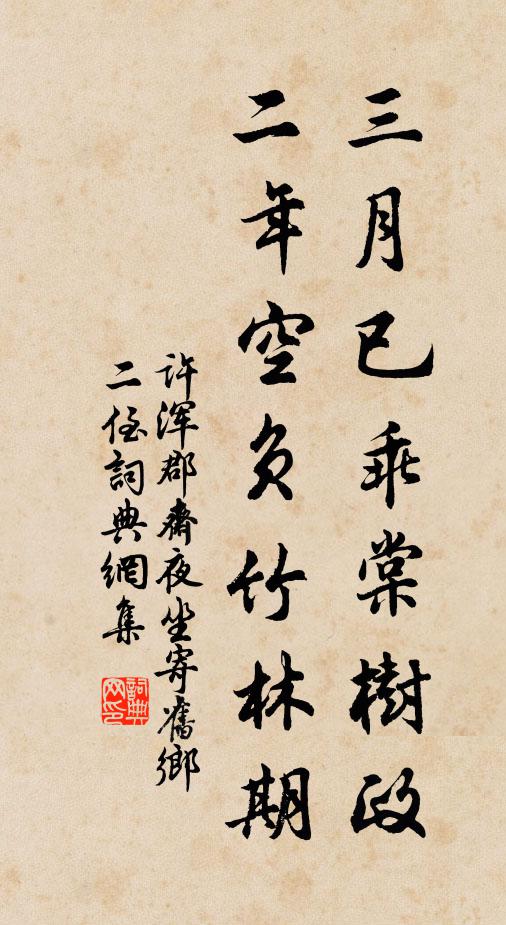 三月已乖棠樹政
二年空負竹林期
许渾郡齋夜坐寄舊鄉
二侄詞典網集
詞典網印